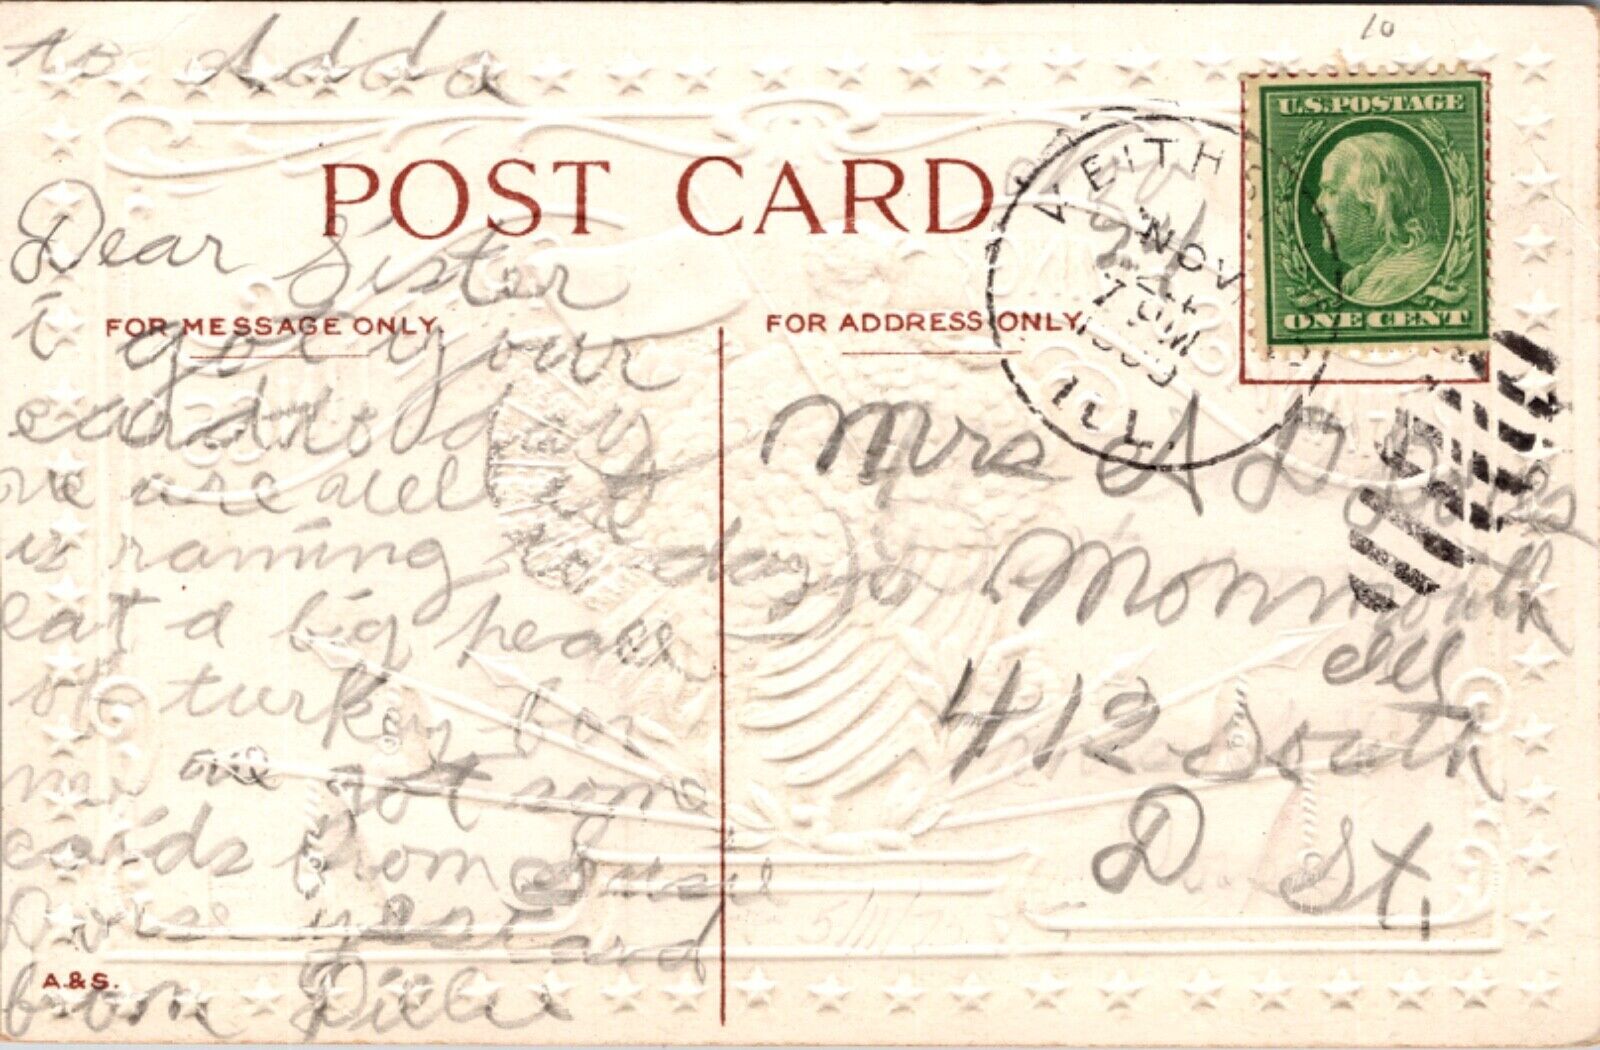 10
to Adda
U.S. POSTAGE
ONE CENT
KEITHSBURG
NOV 24
7 PM
1909
ILL.
POST CARD
FOR MESSAGE ONLY.
FOR ADDRESS ONLY.
Dear Sister
i got your
card to day
we are well it
is raining to day
eat a big peac
of turkey for
me we got some
cards from Susie
yes and
from Dillie
Mrs A D
Monmouth
Ill
412 South
D St,
A.& S.